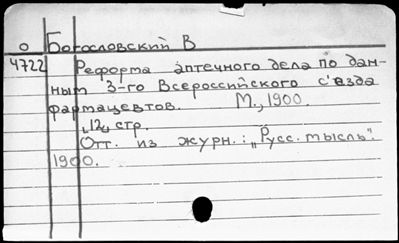 о Богословский В
4722 Реформа аптечного дела по дан-
ным 3-го Всероссийского с'езда
фармацевтов. М., 1900.
"12" стр.
Отт. из журн.: „Русс. мысль".
1900.